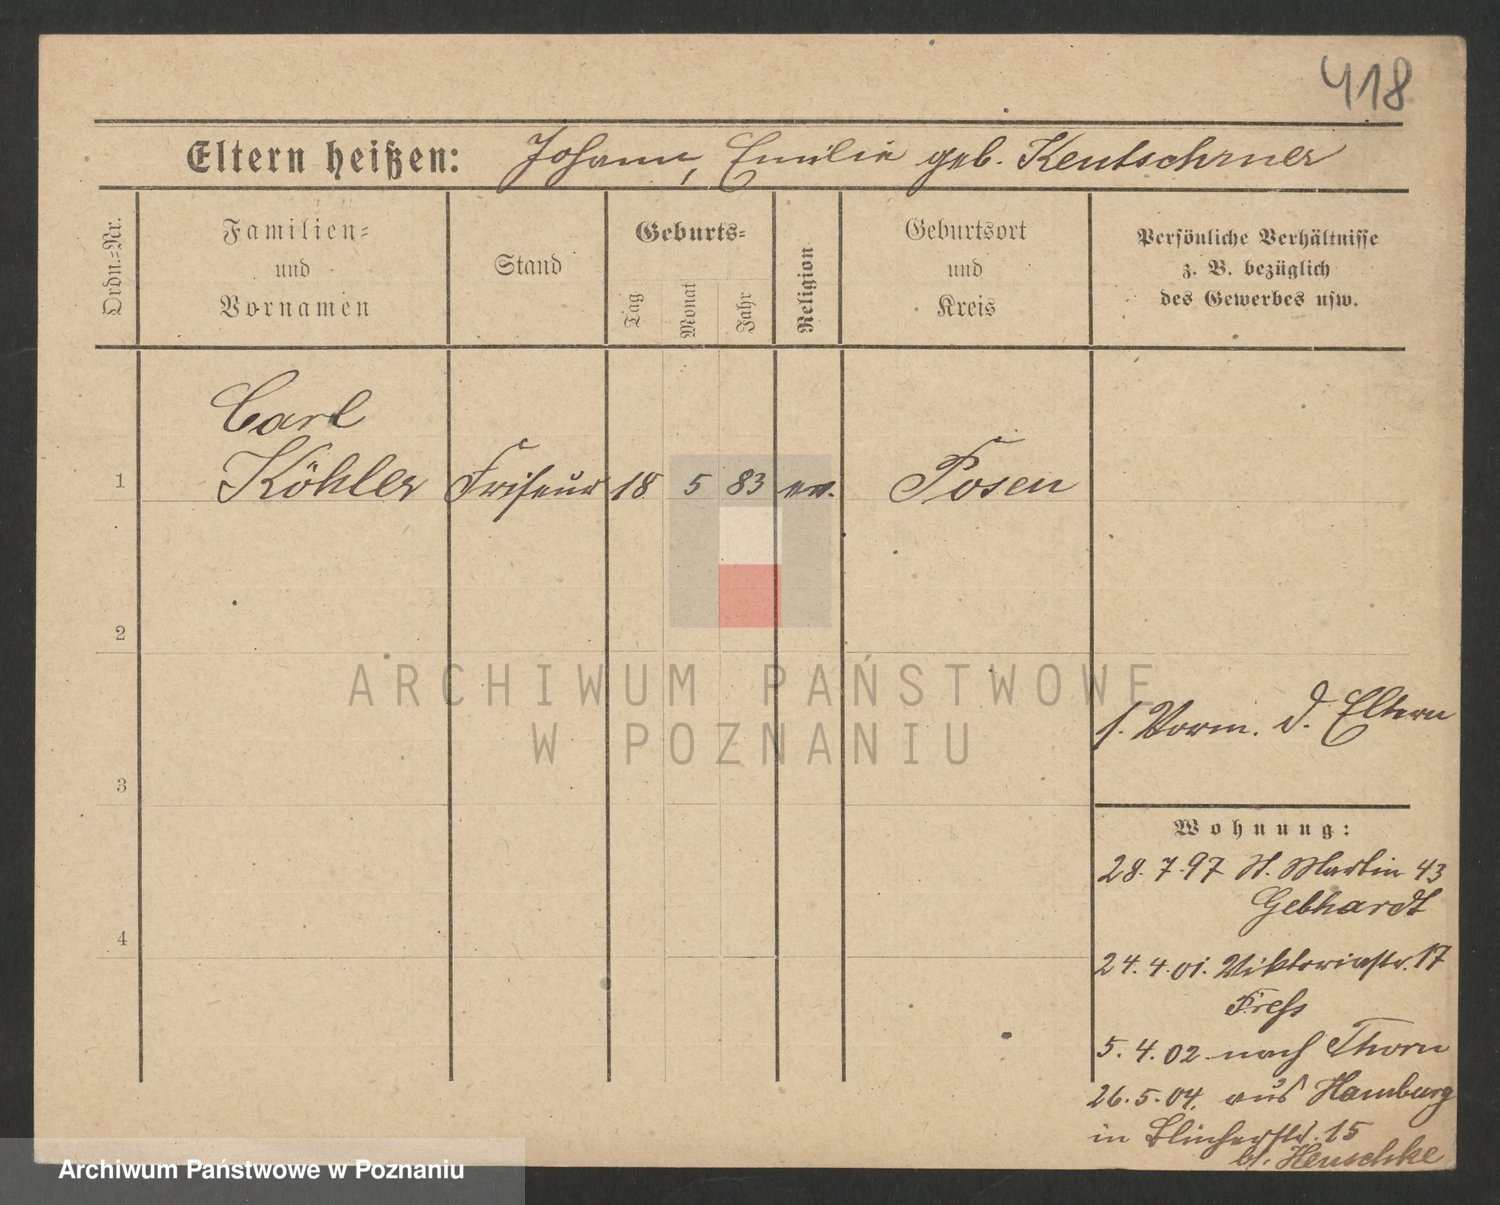 418
Eltern heißen: Johann, Emilie geb. Kentschrner
Ordn.-Nr.
Familien-
und
Vornamen
Stand
Geburts-
Tag
Monat
Jahr
Religion
Geburtsort
und
Kreis
Persönliche Verhältnisse
z. B. bezüglich
des Gewerbes usw.
Carl
1 Köhler Friseur 18 5 83 ev. Posen
2
ARCHIWUM PAŃSTWOWE
W POZNANIU
s. Vorm. d. Eltern
3
Wohnung:
28.7.97 St. Martin 43
Gebhardt
4
24.4.01. Viktoriastr. 17
5.4.02 nach Thorn
26.5.04. aus Hamburg
in Blücherstr. 15
b. Henschke
Archiwum Państwowe w Poznaniu